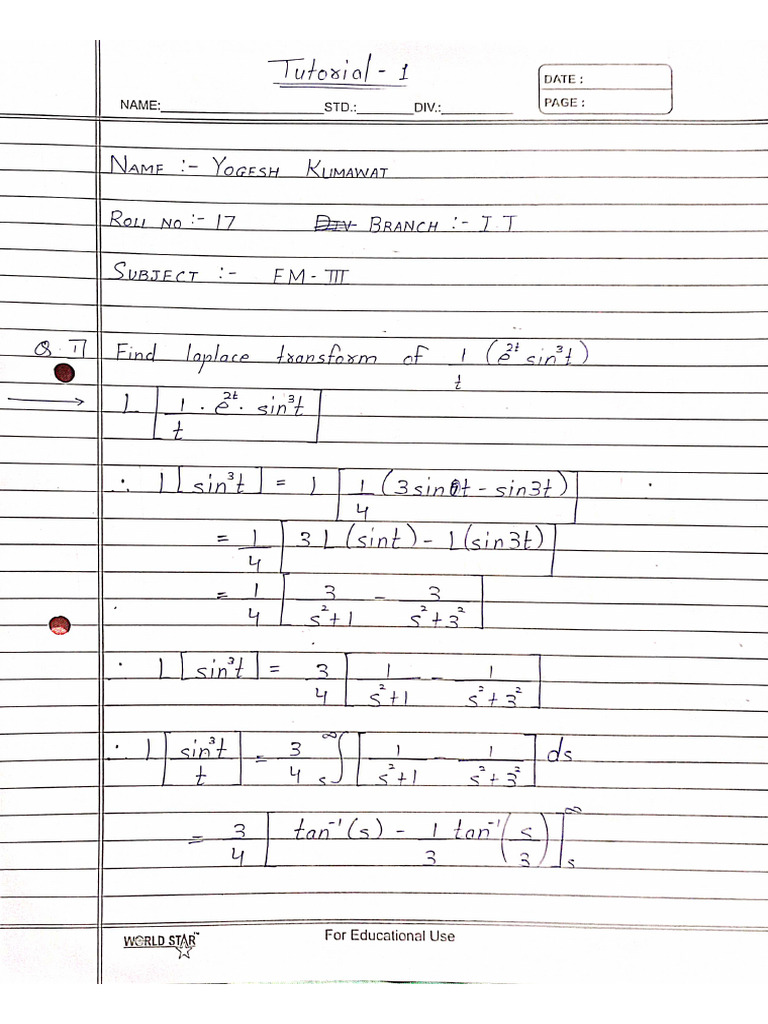 Tutorial - 1
DATE :
NAME: STD.: DIV.:
PAGE :
NAME :- YOGESH KUMAWAT
ROLL NO :- 17 DIV BRANCH :- I.T
SUBJECT :- EM - III
Q.1] Find laplace transform of 1/t (e^2t sin³t)
→ L [1/t · e^2t · sin³t]
∴ L[sin³t] = L [1/4 (3sint - sin3t)]
= 1/4 [3L(sint) - L(sin3t)]
= 1/4 [3/(s²+1) - 3/(s²+3²)]
∴ L[sin³t] = 3/4 [1/(s²+1) - 1/(s²+3²)]
∴ L[sin³t/t] = 3/4 s∫^∞ [1/(s²+1) - 1/(s²+3²)] ds
= 3/4 [tan⁻¹(s) - 1/3 tan⁻¹(s/3)]s^∞
WORLD STAR™
For Educational Use